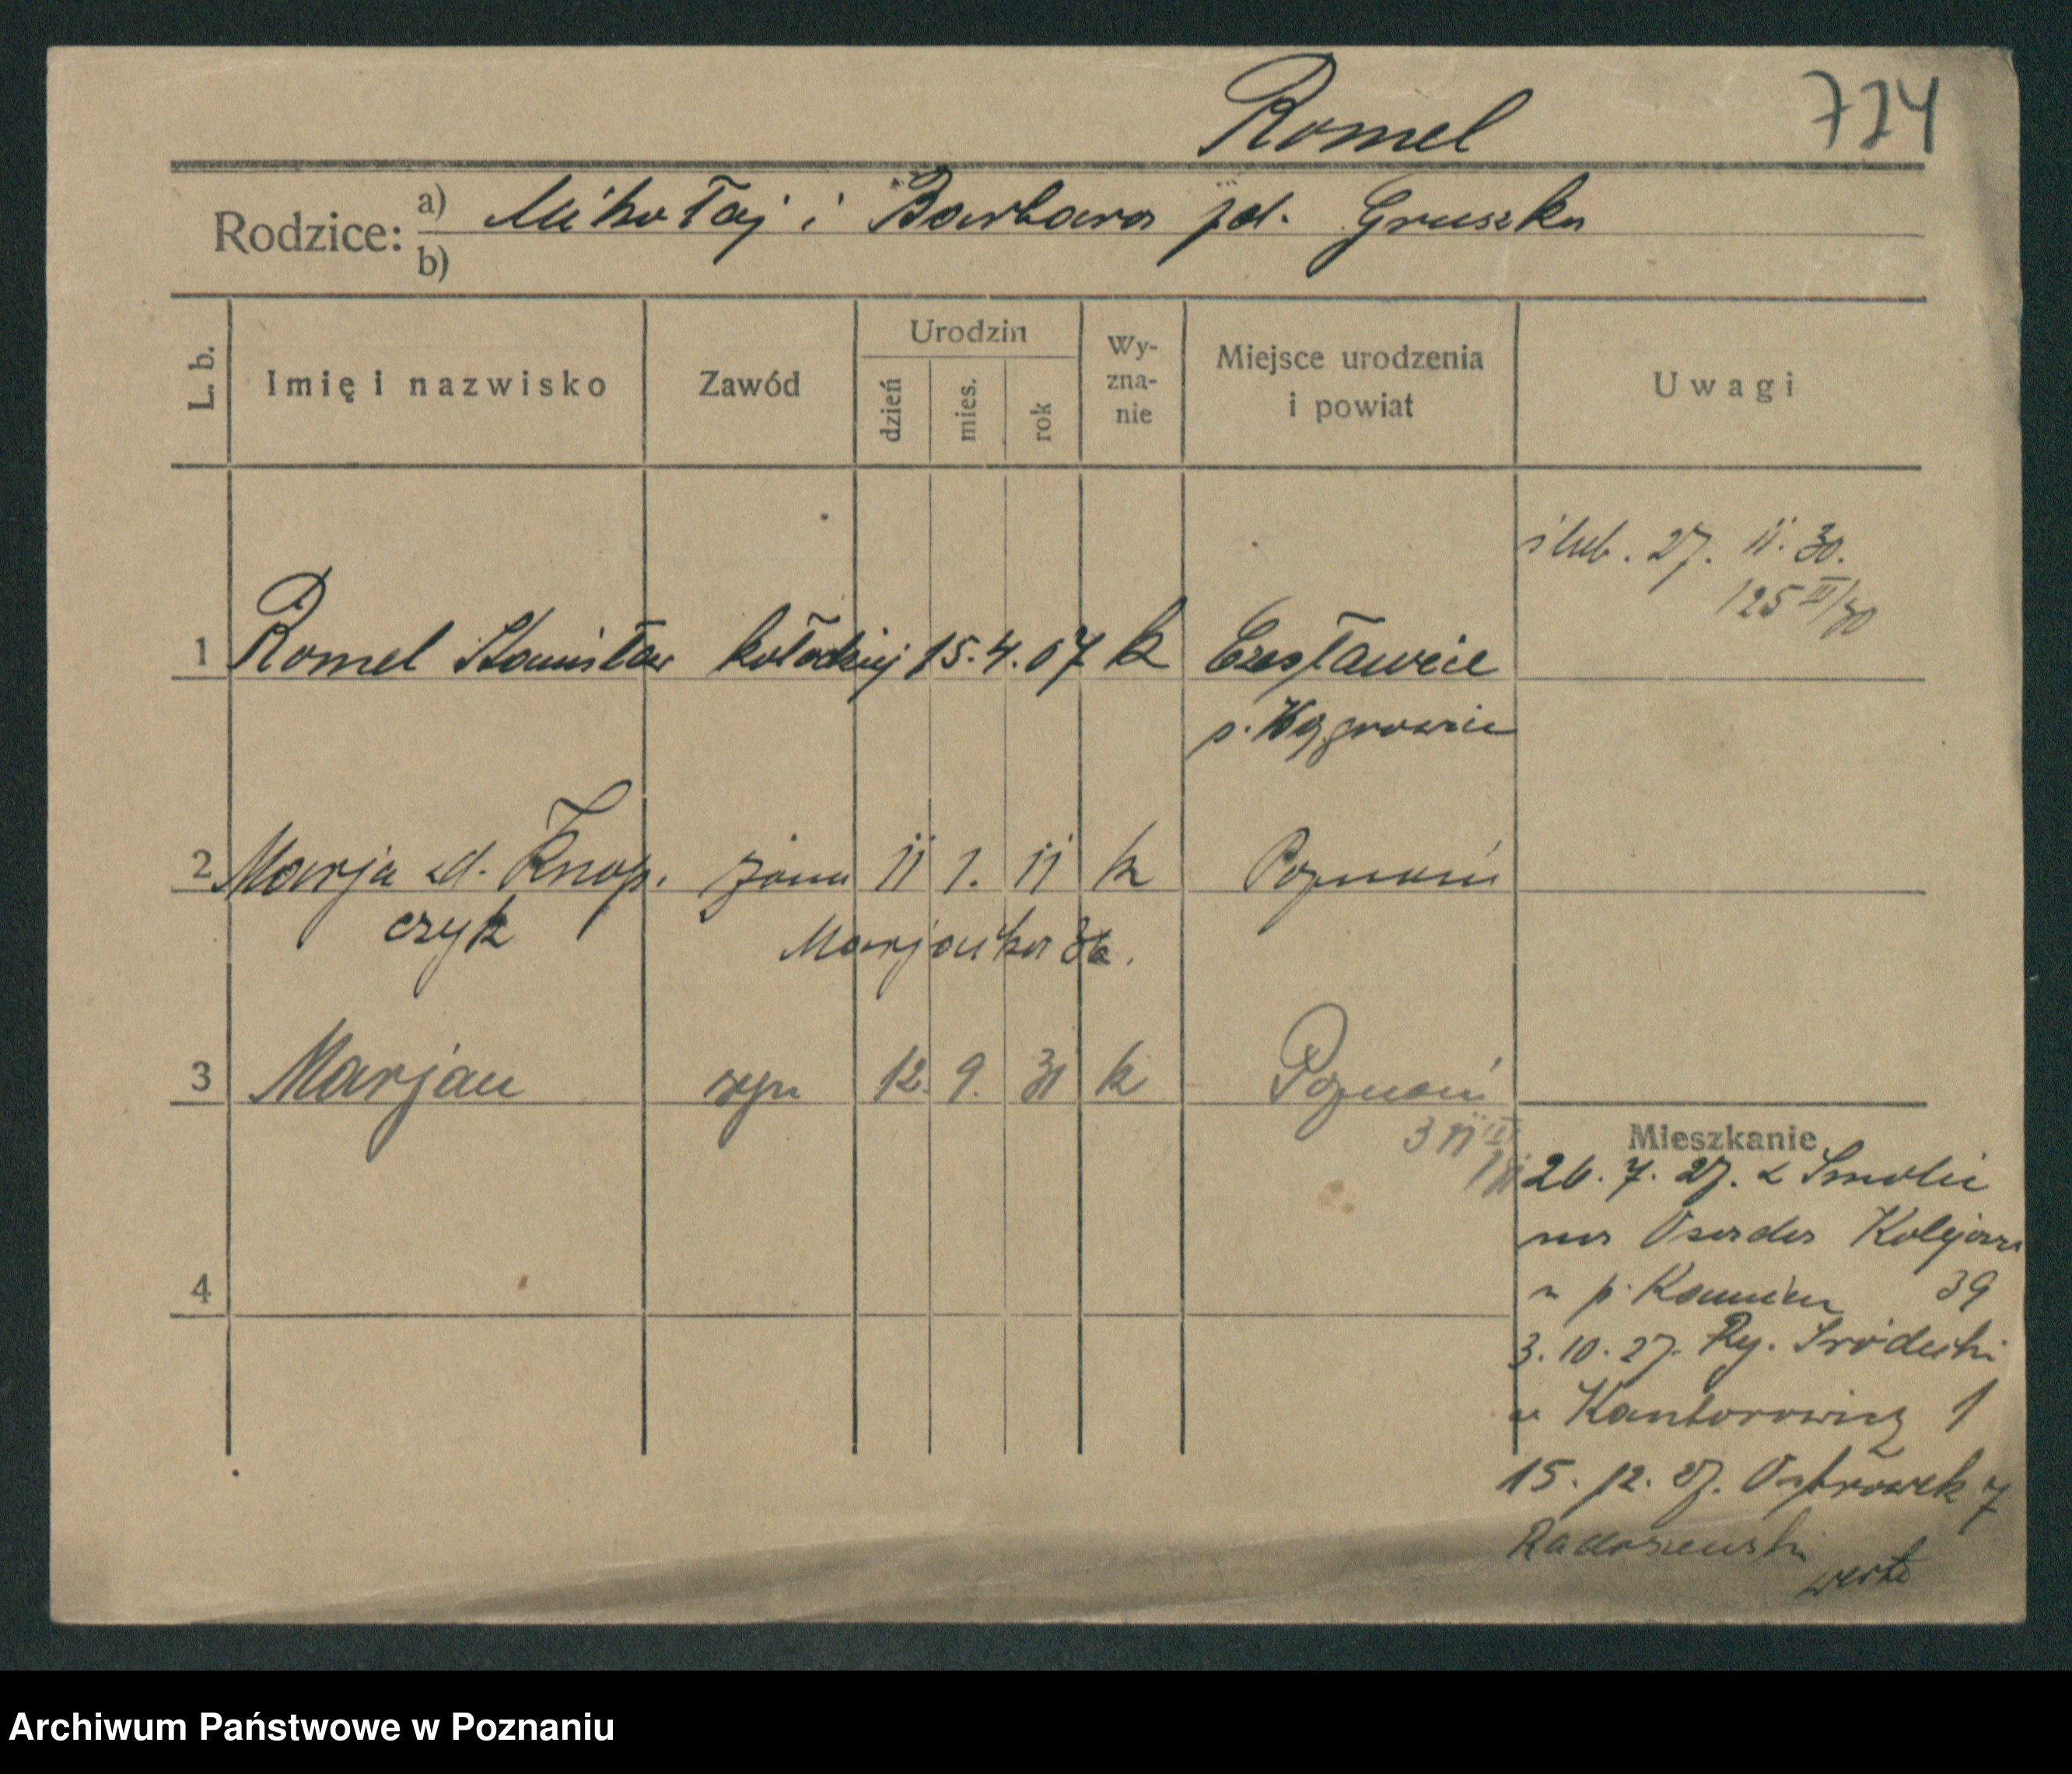 Romel 724
Rodzice: a) Mikołaj i Barbara zd. Gruszka
b)
L. b. Imię i nazwisko Zawód Urodzin dzień mies. rok Wy-zna-nie Miejsce urodzenia i powiat Uwagi
ślub. 27. 11. 30.
125 II/30
1 Romel Stanisław kołodziej 15. 4. 07 k Czesławice
p. Wągrowiec
2 Marja zd. Knop. żona 11 1. 11 k Poznań
czyk Marjańska
3 Marjan syn 12. 9. 31 k Poznań
Mieszkanie
26. 7. 27. z Smolic
na Osada Kolejowa
u p. Kamień 39
3. 10. 27. Ry. Śródecki
u Kantorowicz 1
15. 12. 27. Ostrówek 7
Radoszewski
verte
4
Archiwum Państwowe w Poznaniu